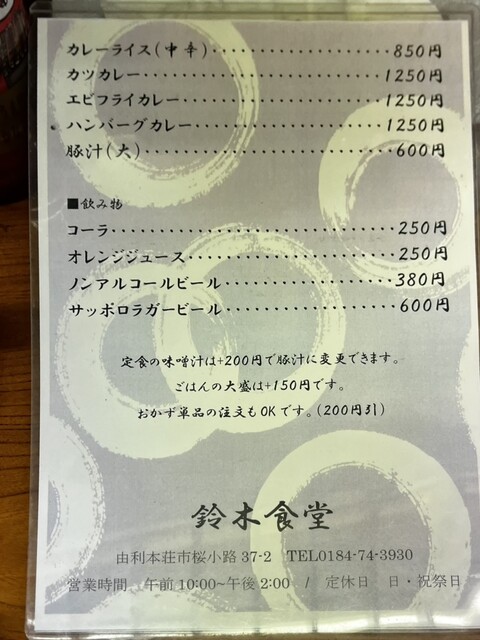 カレーライス(中辛)・・・・・・・・・・・・・・・・・・850円
カツカレー・・・・・・・・・・・・・・・・・・・・・・・・1250円
エビフライカレー・・・・・・・・・・・・・・・・・・・・1250円
ハンバーグカレー・・・・・・・・・・・・・・・・・・・1250円
豚汁(大)・・・・・・・・・・・・・・・・・・・・・・・・・600円
■飲み物
コーラ・・・・・・・・・・・・・・・・・・・・・・・・・・・・250円
オレンジジュース・・・・・・・・・・・・・・・・・・・・250円
ノンアルコールビール・・・・・・・・・・・・・・・・380円
サッポロラガービール・・・・・・・・・・・・・・・・600円
定食の味噌汁は+200円で豚汁に変更できます。
ごはんの大盛は+150円です。
おかず単品の注文もOKです。(200円引)
鈴木食堂
由利本荘市桜小路37-2 TEL0184-74-3930
営業時間 午前10:00~午後2:00 / 定休日 日・祝祭日